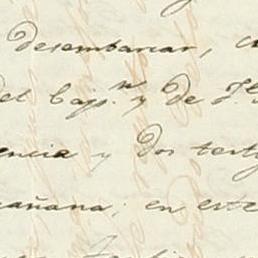 desembarcar, c
el Cap.n y de
encia y dos test
cañana; en este